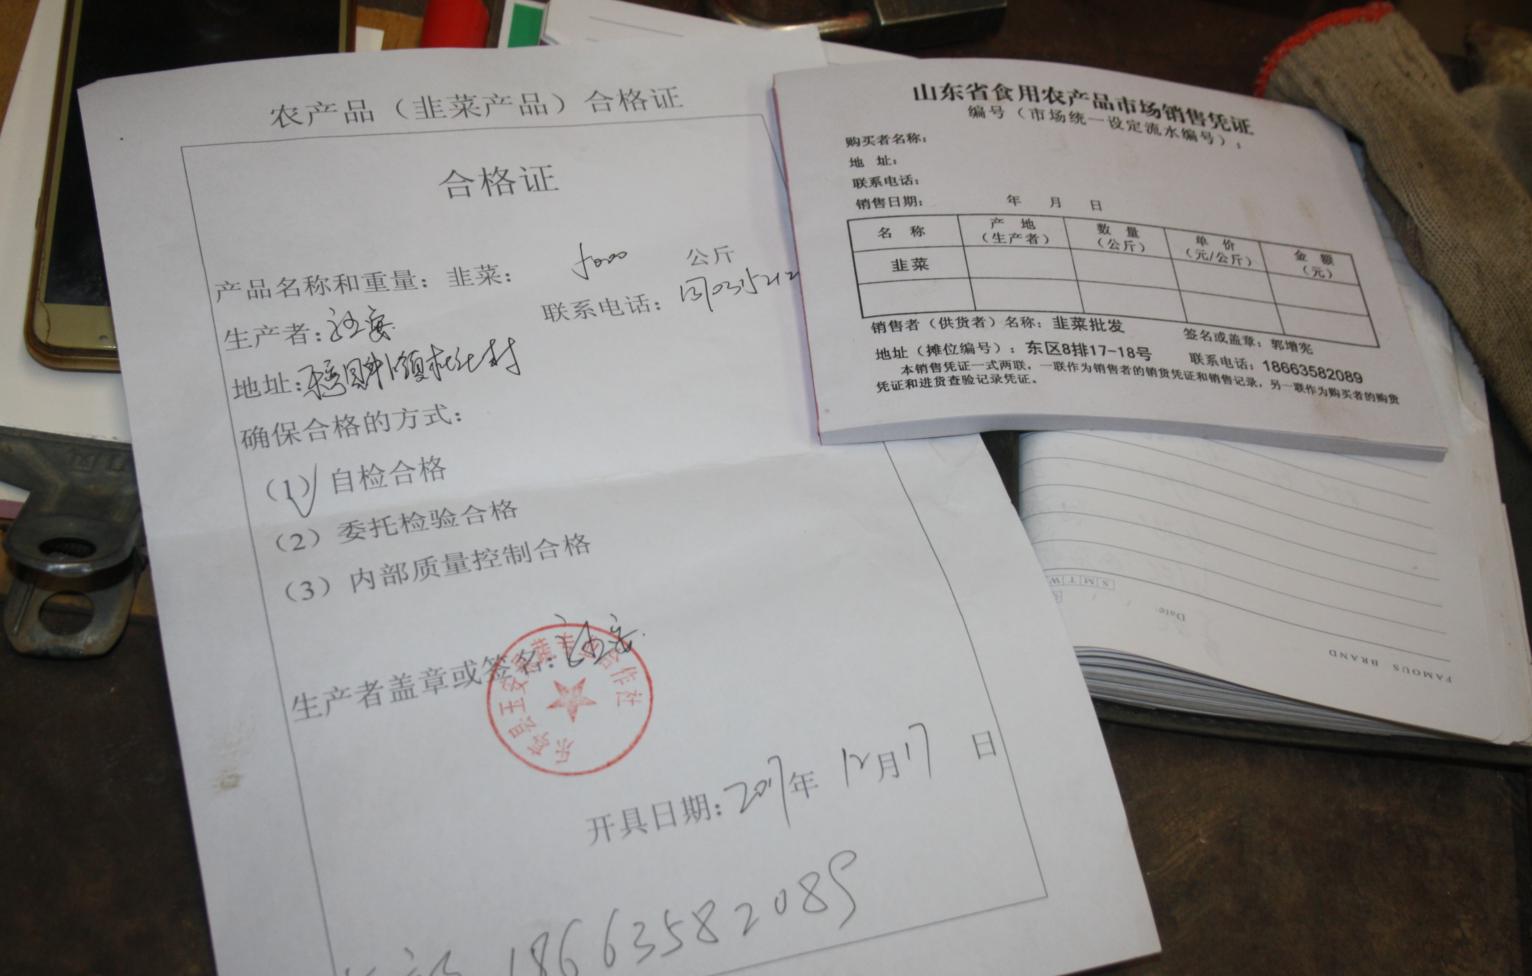 农产品（韭菜产品）合格证
合格证
产品名称和重量：韭菜： 5000 公斤
生产者：
联系电话：
地址：
确保合格的方式：
（1）√ 自检合格
（2）委托检验合格
（3）内部质量控制合格
生产者盖章或签名：
开具日期：2017年 12月17 日
18663582089
山东省食用农产品市场销售凭证
编号（市场统一设定流水编号）：
购买者名称：
地 址：
联系电话：
销售日期： 年 月 日
名 称 产 地（生产者） 数 量（公斤） 单 价（元/公斤） 金 额（元）
韭菜
销售者（供货者）名称：韭菜批发 签名或盖章：郭增宪
地址（摊位编号）：东区8排17-18号 联系电话：18663582089
本销售凭证一式两联，一联作为销售者的销货凭证和销售记录，另一联作为购买者的购货
凭证和进货查验记录凭证。
S M T W
Date:
FAMOUS BRAND